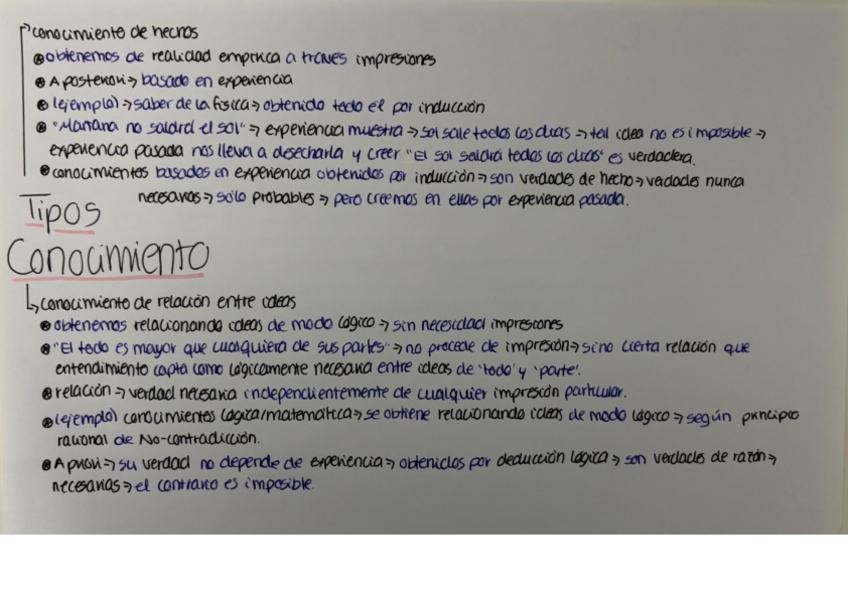 conocimiento de hechos
obtenemos de realidad empírica a través impresiones
A posteriori → basado en experiencia
(ejemplo) → saber de la física → obtenido todo él por inducción
"Mañana no saldrá el sol" → experiencia muestra → sol sale todos los días → tal idea no es imposible →
experiencia pasada nos lleva a desecharla y creer "El sol saldrá todos los días" es verdadera.
conocimientos basados en experiencia obtenidos por inducción → son verdades de hecho → verdades nunca
necesarias → sólo probables → pero creemos en ellas por experiencia pasada.
Tipos
Conocimiento
conocimiento de relación entre ideas
obtenemos relacionando ideas de modo lógico → sin necesidad impresiones
"El todo es mayor que cualquiera de sus partes" → no procede de impresión → sino cierta relación que
entendimiento capta como lógicamente necesaria entre ideas de 'todo' y 'parte'.
relación → verdad necesaria independientemente de cualquier impresión particular.
(ejemplo) conocimientos lógica/matemática → se obtiene relacionando ideas de modo lógico → según principio
racional de No-contradicción.
A priori → su verdad no depende de experiencia → obtenidos por deducción lógica → son verdades de razón →
necesarias → el contrario es imposible.